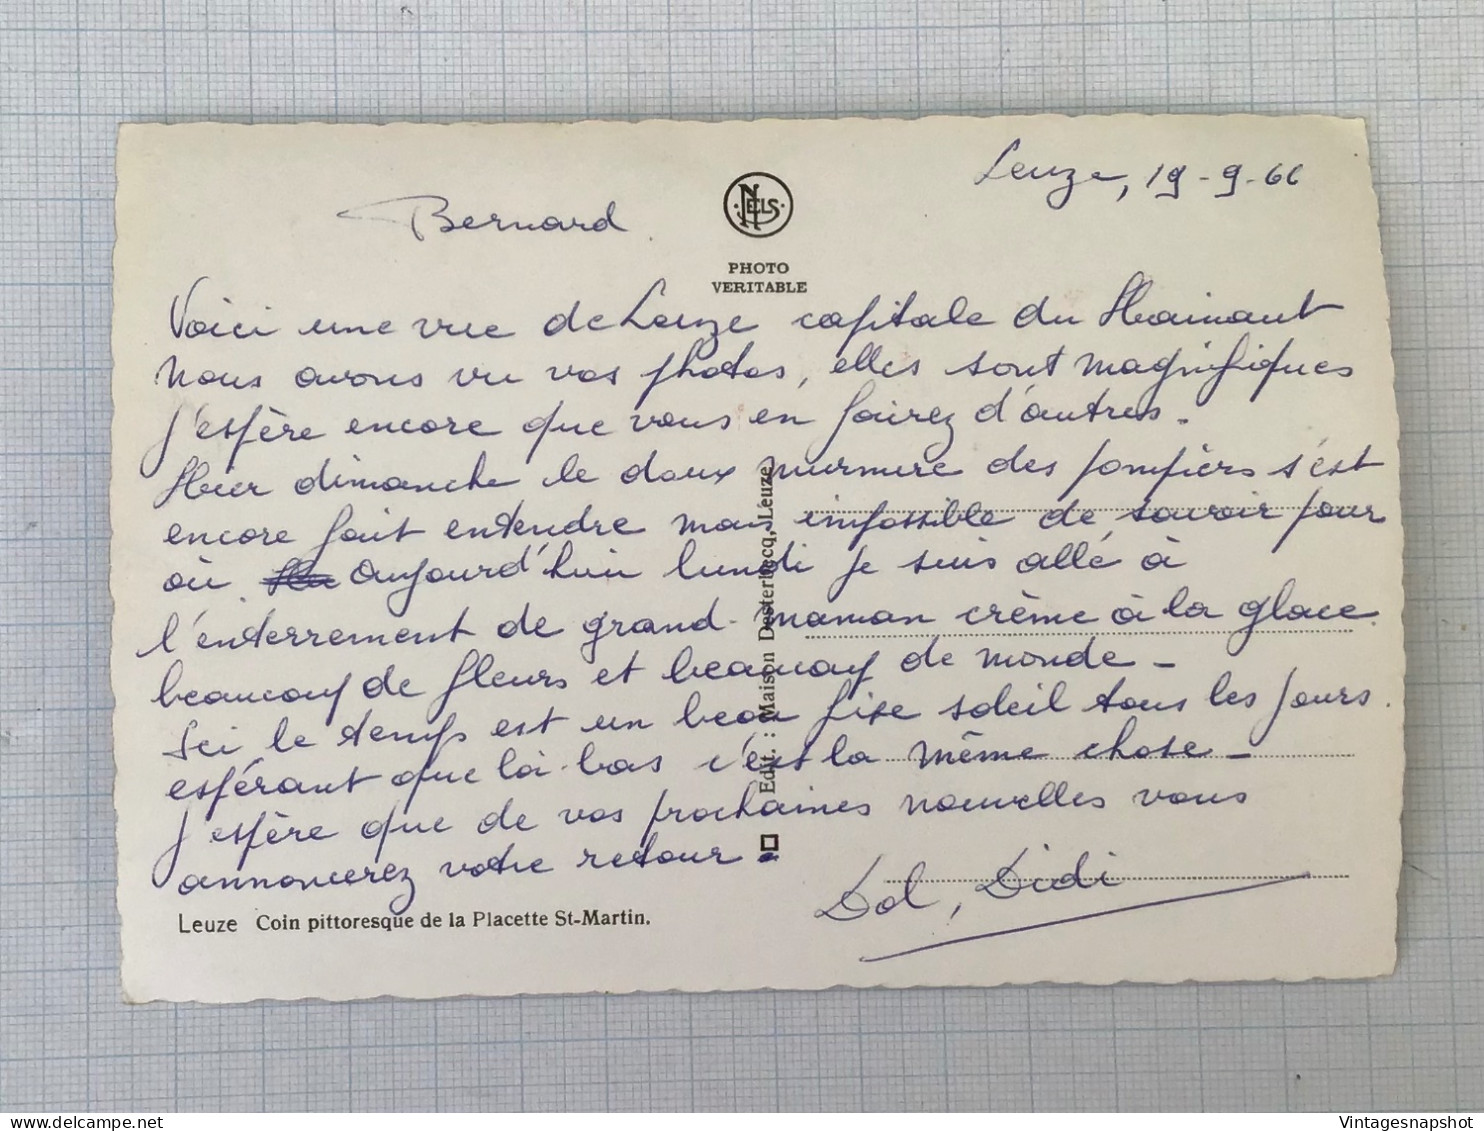 Leuze, 19-9-66
Bernard
NELS
PHOTO
VERITABLE
Voici une vue de Leuze capitale du Hainaut
Nous avons vu vos photos, elles sont magnifiques
J'espère encore que vous en fairez d'autres.
Hier dimanche le doux murmure des pompiers s'est
encore fait entendre mais impossible de savoir pour
où. Aujourd'hui lundi je suis allé à
l'enterrement de grand-maman crème à la glace.
beaucoup de fleurs et beaucoup de monde -
Ici le temps est un beau fixe soleil tous les jours.
espérant que là-bas c'est la même chose -
J'espère que de vos prochaines nouvelles vous
annoncerez votre retour.
Dol, Didi
Edit. : Maison Desterbecq, Leuze
Leuze Coin pittoresque de la Placette St-Martin.
Vintagesnapshot